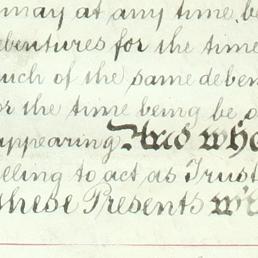 may at any time be
ebentures for the time
uch of the same deben
or the time being be o
appearing And whe
eling to act as Trust
these Presents wi